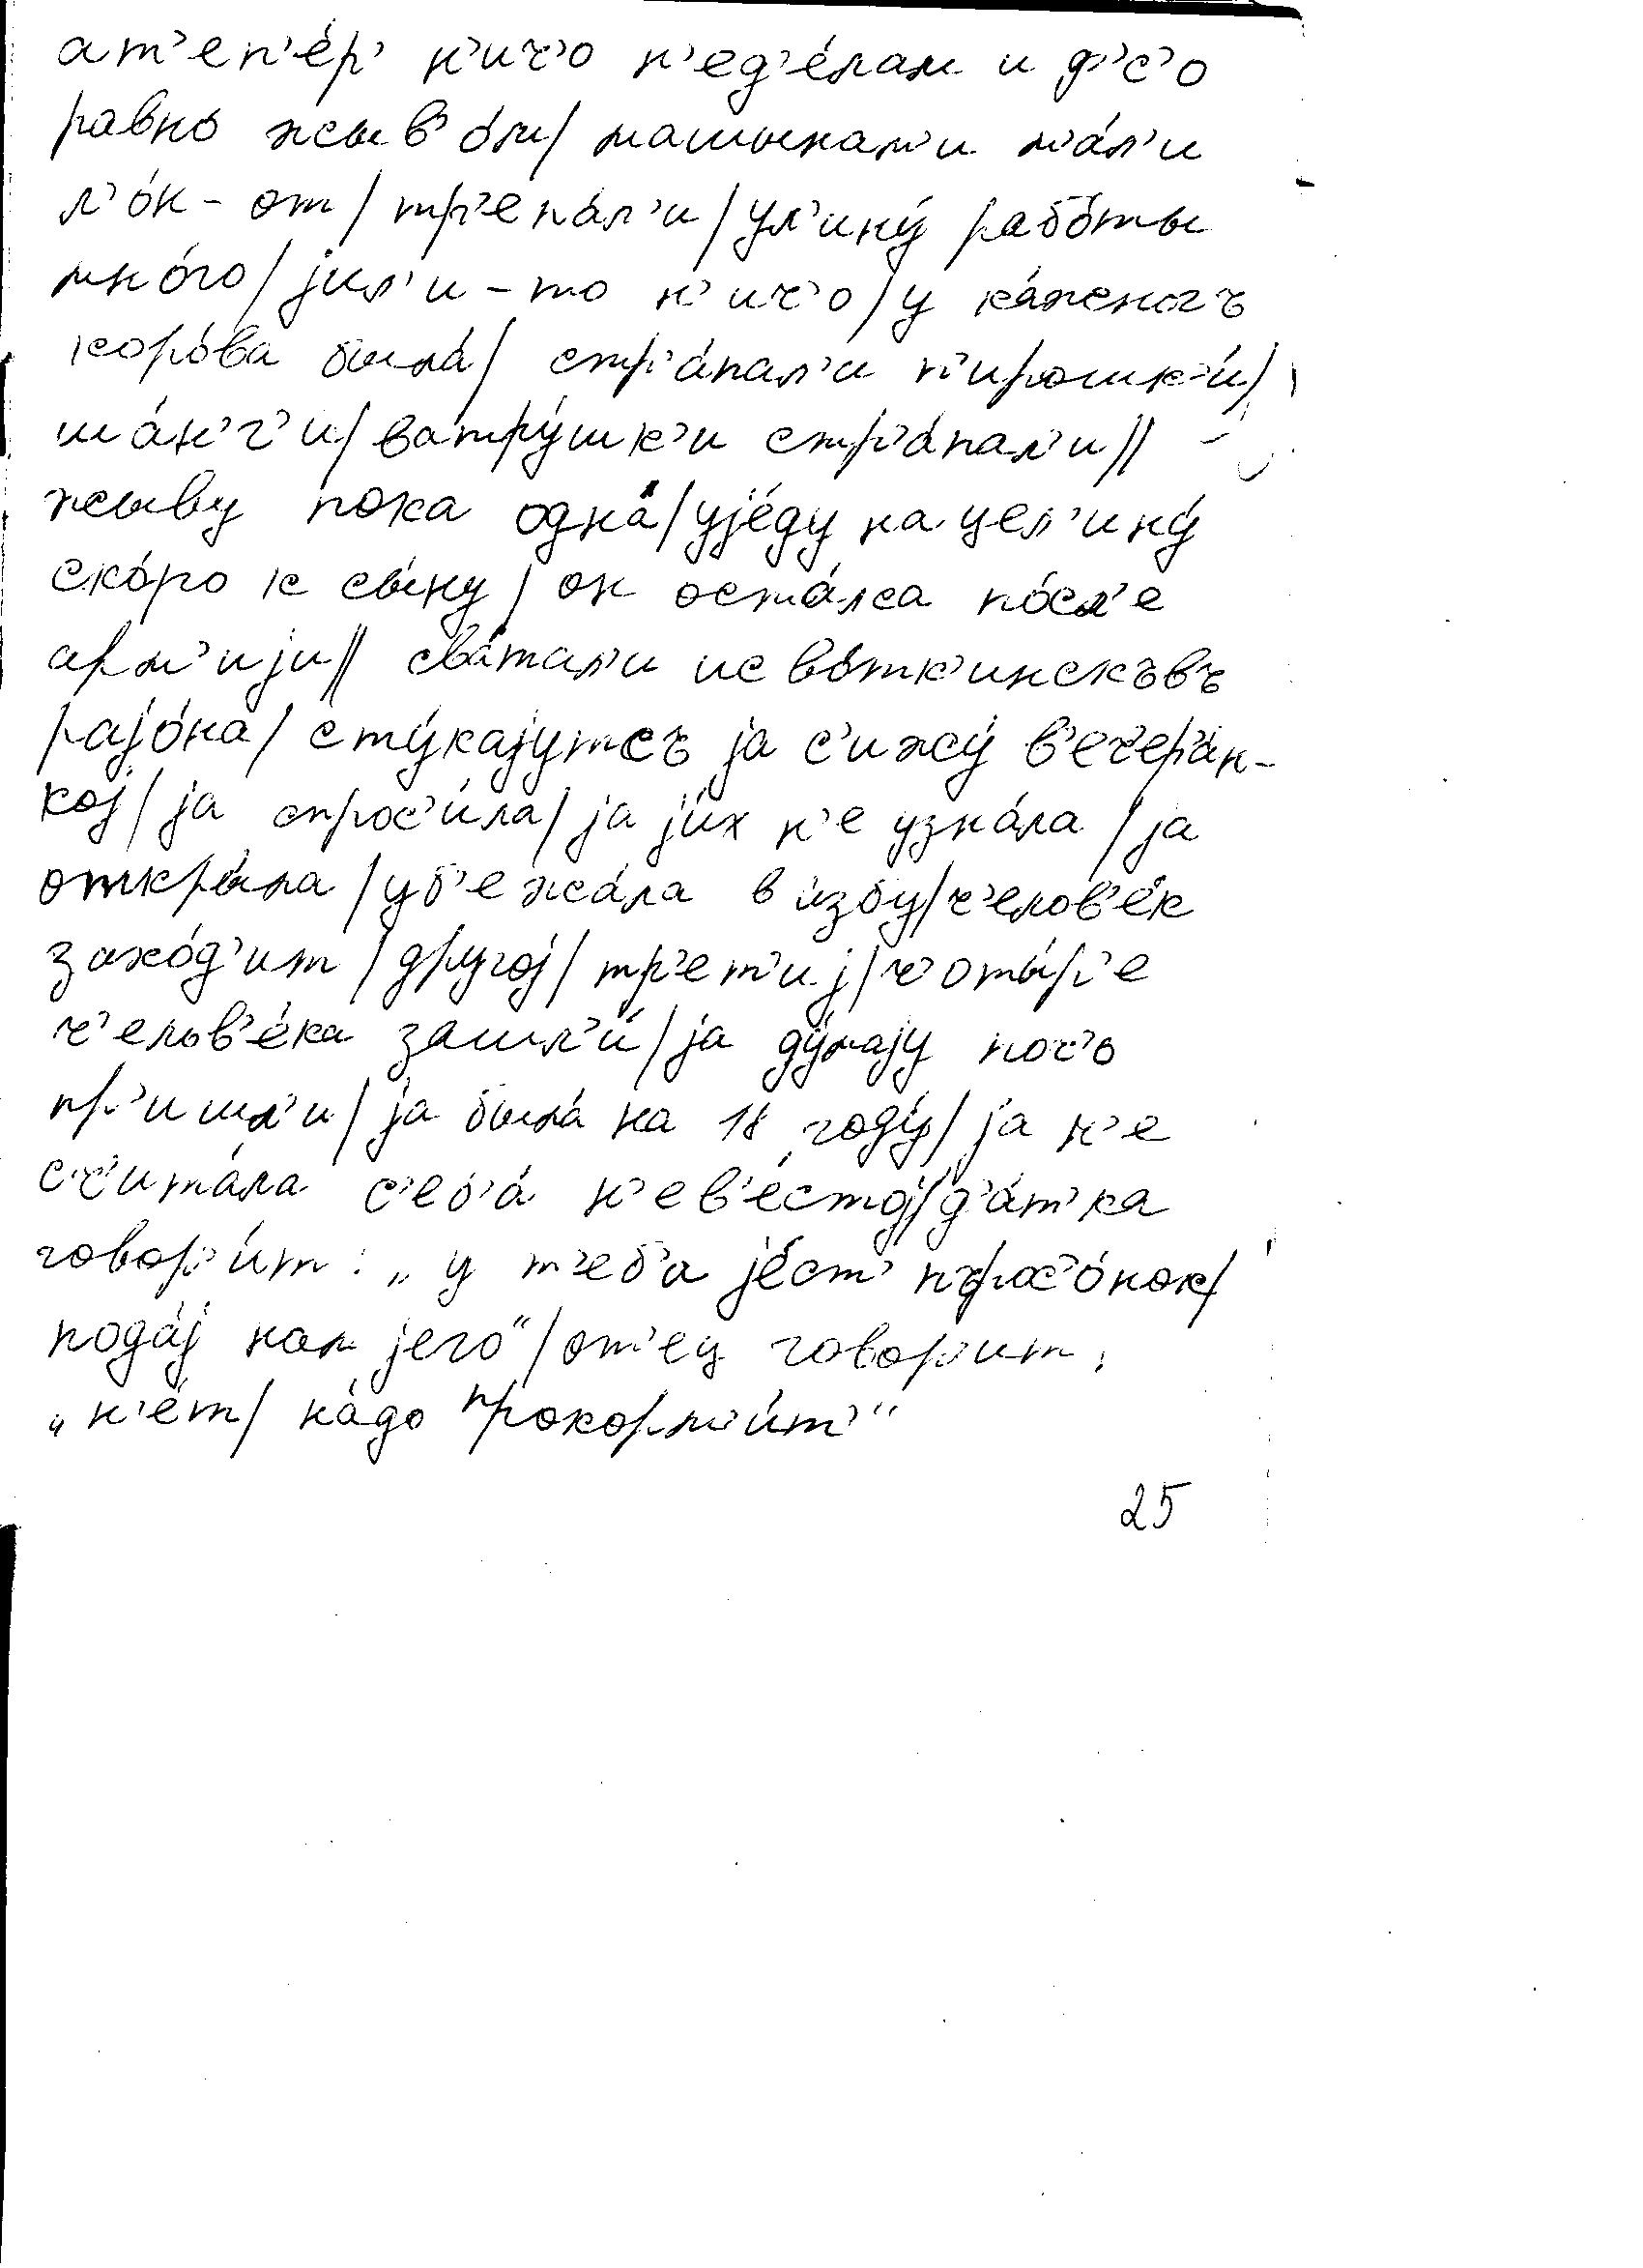 ат’еп’е́р’ н’ич’о н’ед’е́лам и ф’с’о
равно жыв’о́м/ машынам’и м’а́л’и
л’о́н-от/ тр’епа́л’и/ ул’ину́ рабо́ты
мно́го/ јил’и-то н’ич’о/ у ка́жногъ
коро́ва была́/ стр’а́пал’и п’ирошк’и́/
ша́н’г’и/ ватру́шк’и стр’а́пал’и//
жыву пока одна́/ ује́ду на цел’ину́
ско́ро к сы́ну/ он оста́лса по́сл’е
арм’ији// сва́тал’и ис во́тк’инскъвъ
рајо́на/ сту́кајутсъ ја с’ижу́ в’еч’ер’а́н-
кој/ ја спрос’и́ла/ ја ји́х н’е узна́ла/ ја
откры́ла/ уб’ежа́ла в и́збу/ ч’елов’е́к
захо́д’ит/ друго́ј/ тр’ет’иј/ ч’оты́р’е
ч’елов’е́ка зашл’и́/ ја ду́мају поч’о
пр’ишл’и/ ја была́ на 18 году́/ ја н’е
сч’ита́ла с’еб’а́ н’ев’е́стој/ д’а́т’ка
говор’и́т: „у т’еб’а је́ст’ пърос’о́нок/
пода́ј нам јего́“/ от’ец говор’ит:
„н’е́т/ на́до прокорм’и́т’“
25